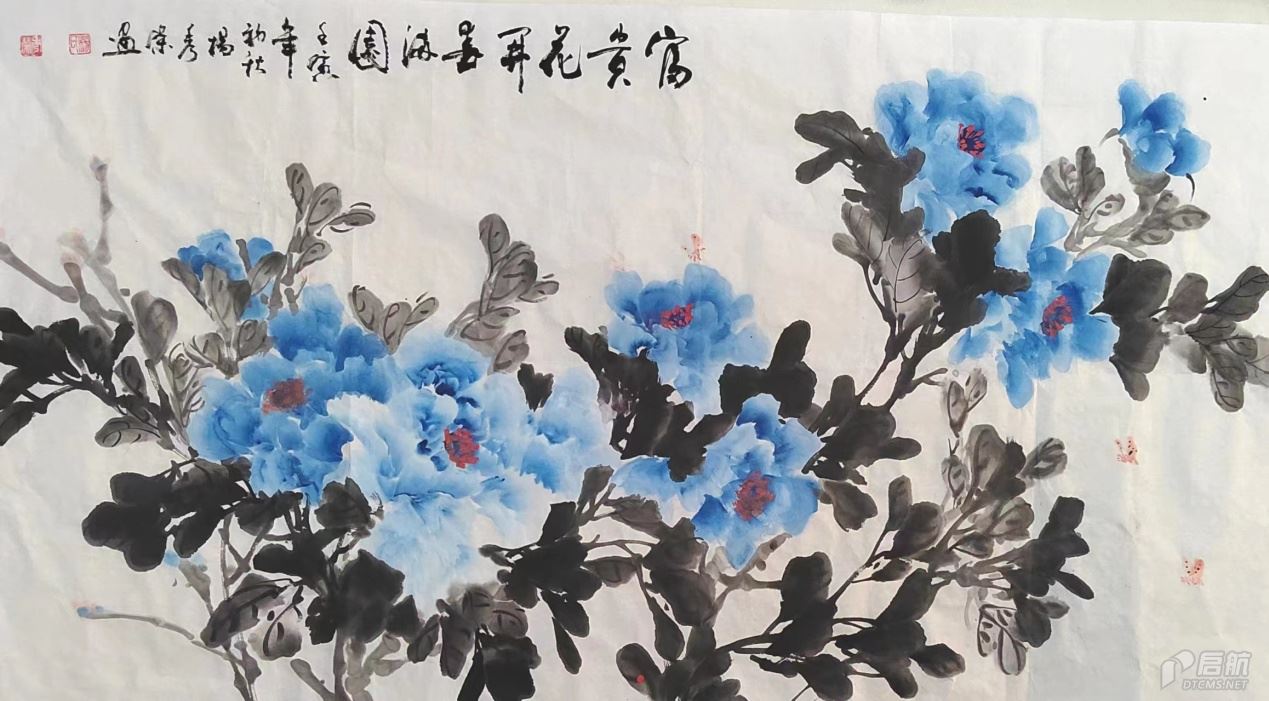 富贵花开春满園
壬寅年初秋楊秀画
启航
DTCMS.NET